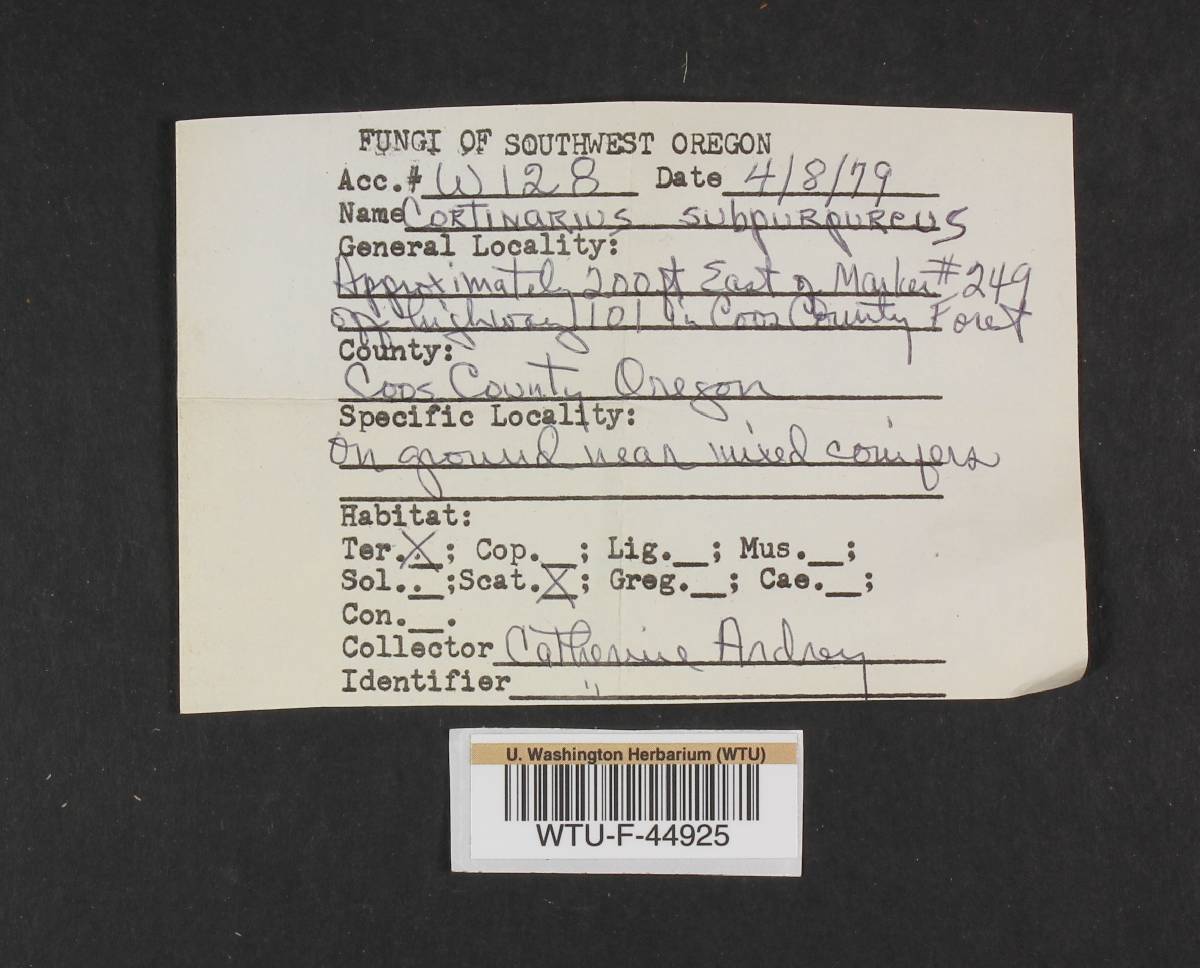 FUNGI OF SOUTHWEST OREGON
Acc.# W128 Date 4/8/79
Name Cortinarius subpurpureus
General Locality:
Approximately 200 ft East of Marker #249
off highway 101 in Coos County Forest
County:
Coos County Oregon
Specific Locality:
On ground near mixed conifers
Habitat:
Ter. X; Cop.__; Lig.__; Mus.__;
Sol..__;Scat.X; Greg.__; Cae.__;
Con.__.
Collector Catherine Ardrey
Identifier "
U. Washington Herbarium (WTU)
WTU-F-44925